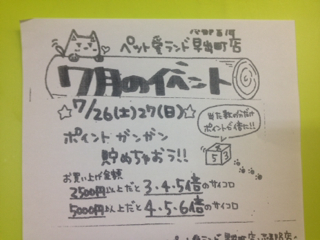 ペット愛ランド早出町店
7月のイベント
☆7/26(土)27(日)☆
ポイントガンガン
貯めちゃおう!!
出た数だけ
ポイント倍だ!!
5 3
お買い上げ金額
2500円以上だと3・4・5倍のサイコロ
5000円以上だと4・5・6倍のサイコロ